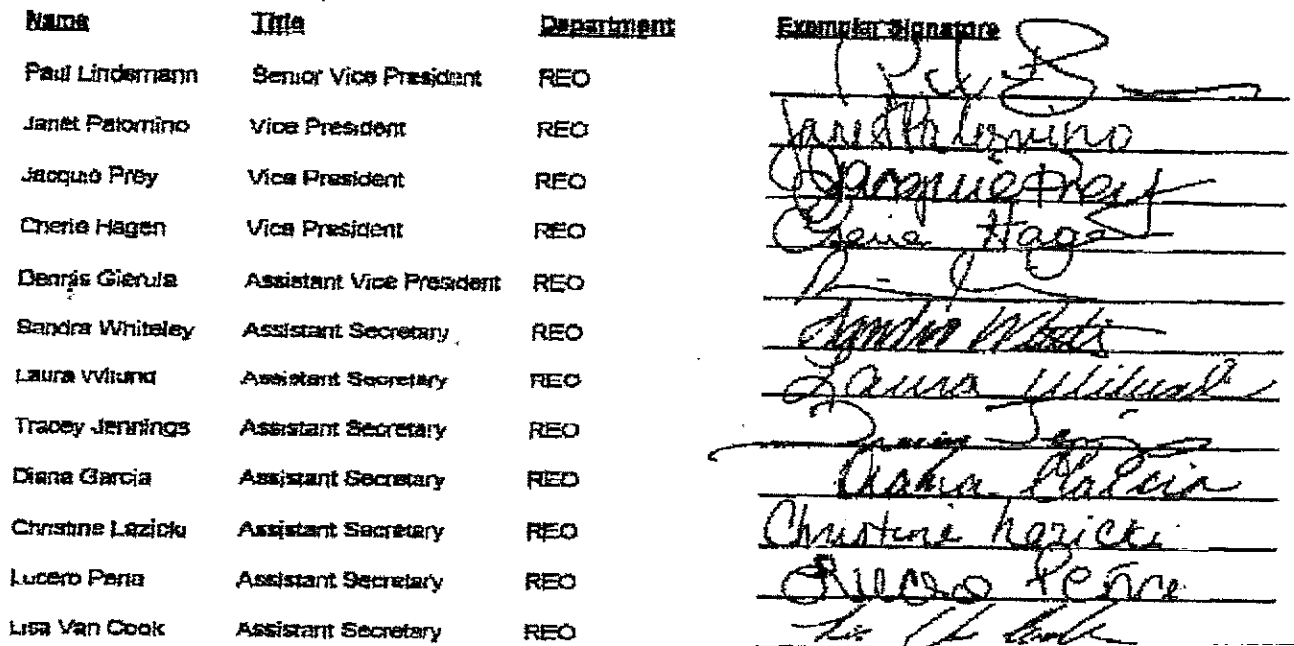 Name Title Department Exemplar Signature
Paul Lindemann Senior Vice President REO
Janet Palomino Vice President REO Janet Palomino
Jacquie Prey Vice President REO Jacquie Prey
Cherie Hagen Vice President REO Cherie Hagen
Dennis Gierula Assistant Vice President REO
Sandra Whiteley Assistant Secretary REO
Laura Wilund Assistant Secretary REO Laura Wilund
Tracey Jennings Assistant Secretary REO
Diana Garcia Assistant Secretary REO Diana Garcia
Christine Lazicki Assistant Secretary REO Christine Lazicki
Lucero Pena Assistant Secretary REO Lucero Peña
Lisa Van Cook Assistant Secretary REO